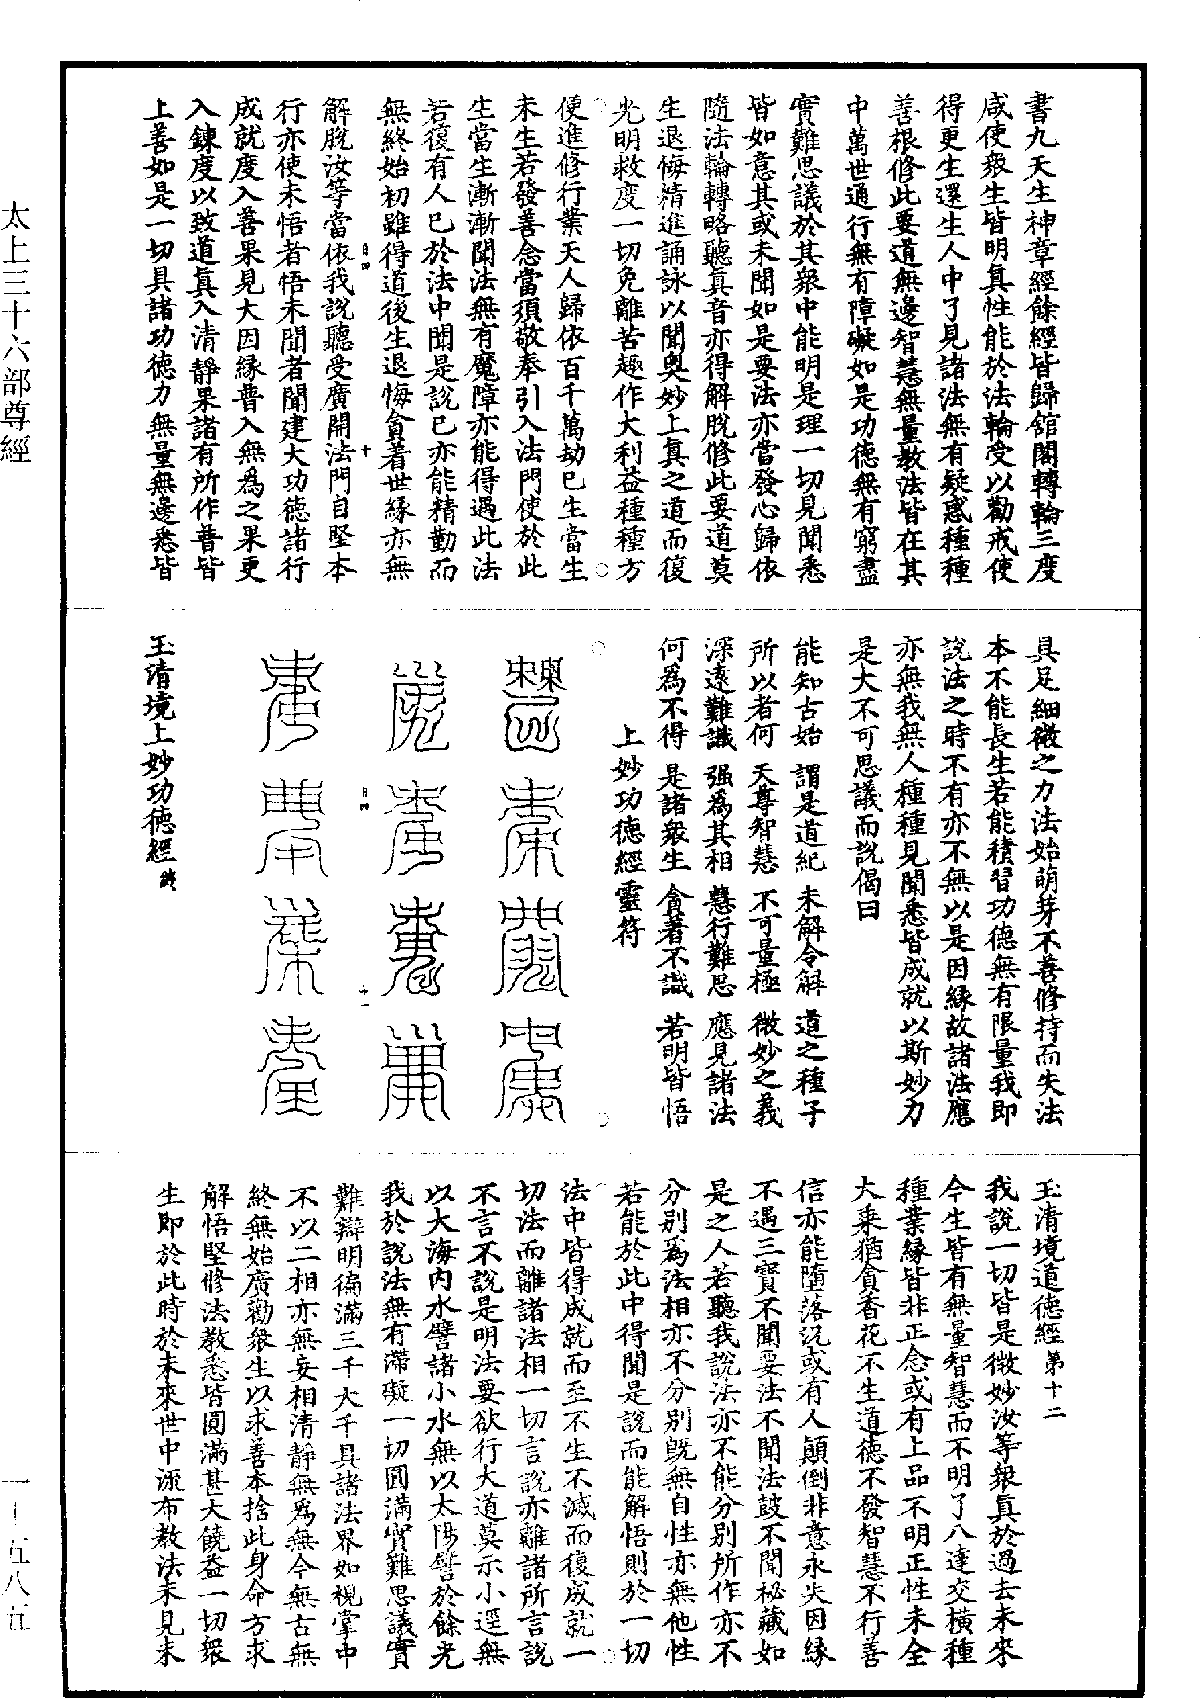 太上三十六部尊經
書九天生神章經餘經皆歸館閣轉輪三度
咸使衆生皆明真性能於法輪受以勸戒使
得更生還生人中了見諸法無有疑惑種種
善根修此要道無邊智慧無量教法皆在其
中萬世通行無有障礙如是功德無有窮盡
實難思議於其衆中能明是理一切見聞悉
皆如意其或未聞如是要法亦當發心歸依
隨法輪轉略聽真音亦得解脫修此要道莫
生退悔精進誦詠以聞奧妙上真之道而復
光明救度一切免離苦趣作大利益種種方
便進修行業天人歸依百千萬劫已生當生
未生若發善念當須敬奉引入法門使於此
生當生漸漸聞法無有魔障亦能得遇此法
若復有人已於法中聞是說已亦能精勤而
無終始初雖得道後生退悔貪着世緣亦無
解脫汝等當依我說聽受廣開法門自堅本
行亦使未悟者悟未聞者聞建大功德諸行
成就度入善果見大因緣普入無爲之果更
入鍊度以致道真入清靜果諸有所作普皆
上善如是一切具諸功德力無量無邊悉皆
具足細微之力法始萌芽不善修持而失法
本不能長生若能積習功德無有限量我即
說法之時不有亦不無以是因緣故諸法應
亦無我無人種種見聞悉皆成就以斯妙力
是大不可思議而說偈曰
能知古始 謂是道紀 未解令解 道之種子
所以者何 天尊智慧 不可量極 微妙之義
深遠難識 强爲其相 慧行難思 應見諸法
何爲不得 是諸衆生 貪著不識 若明皆悟
上妙功德經靈符
玉清境上妙功德經
玉清境道德經第十二
我說一切皆是微妙汝等衆真於過去未來
今生皆有無量智慧而不明了八達交橫種
種業緣皆非正念或有上品不明正性未全
大乘猶貪香花不生道德不發智慧不行善
信亦能墮落況或有人顛倒非意永失因緣
不遇三寶不聞要法不聞法鼓不聞秘藏如
是之人若聽我說法亦不能分別所作亦不
分別爲法相亦不分別旣無自性亦無他性
若能於此中得聞是說而能解悟則於一切
法中皆得成就而至不生不滅而復成就一
切法而離諸法相一切言說亦離諸所言說
不言不說是明法要欲行大道莫示小逕無
以大海內水譬諸小水無以太陽譬於餘光
我於說法無有滯礙一切圓滿實難思議實
難辯明徧滿三千大千具諸法界如視掌中
不以二相亦無妄相清靜無爲無今無古無
終無始廣勸衆生以求善本捨此身命方求
解悟堅修法教悉皆圓滿甚大饒益一切衆
生即於此時於未來世中流布教法未見未
一—五八五